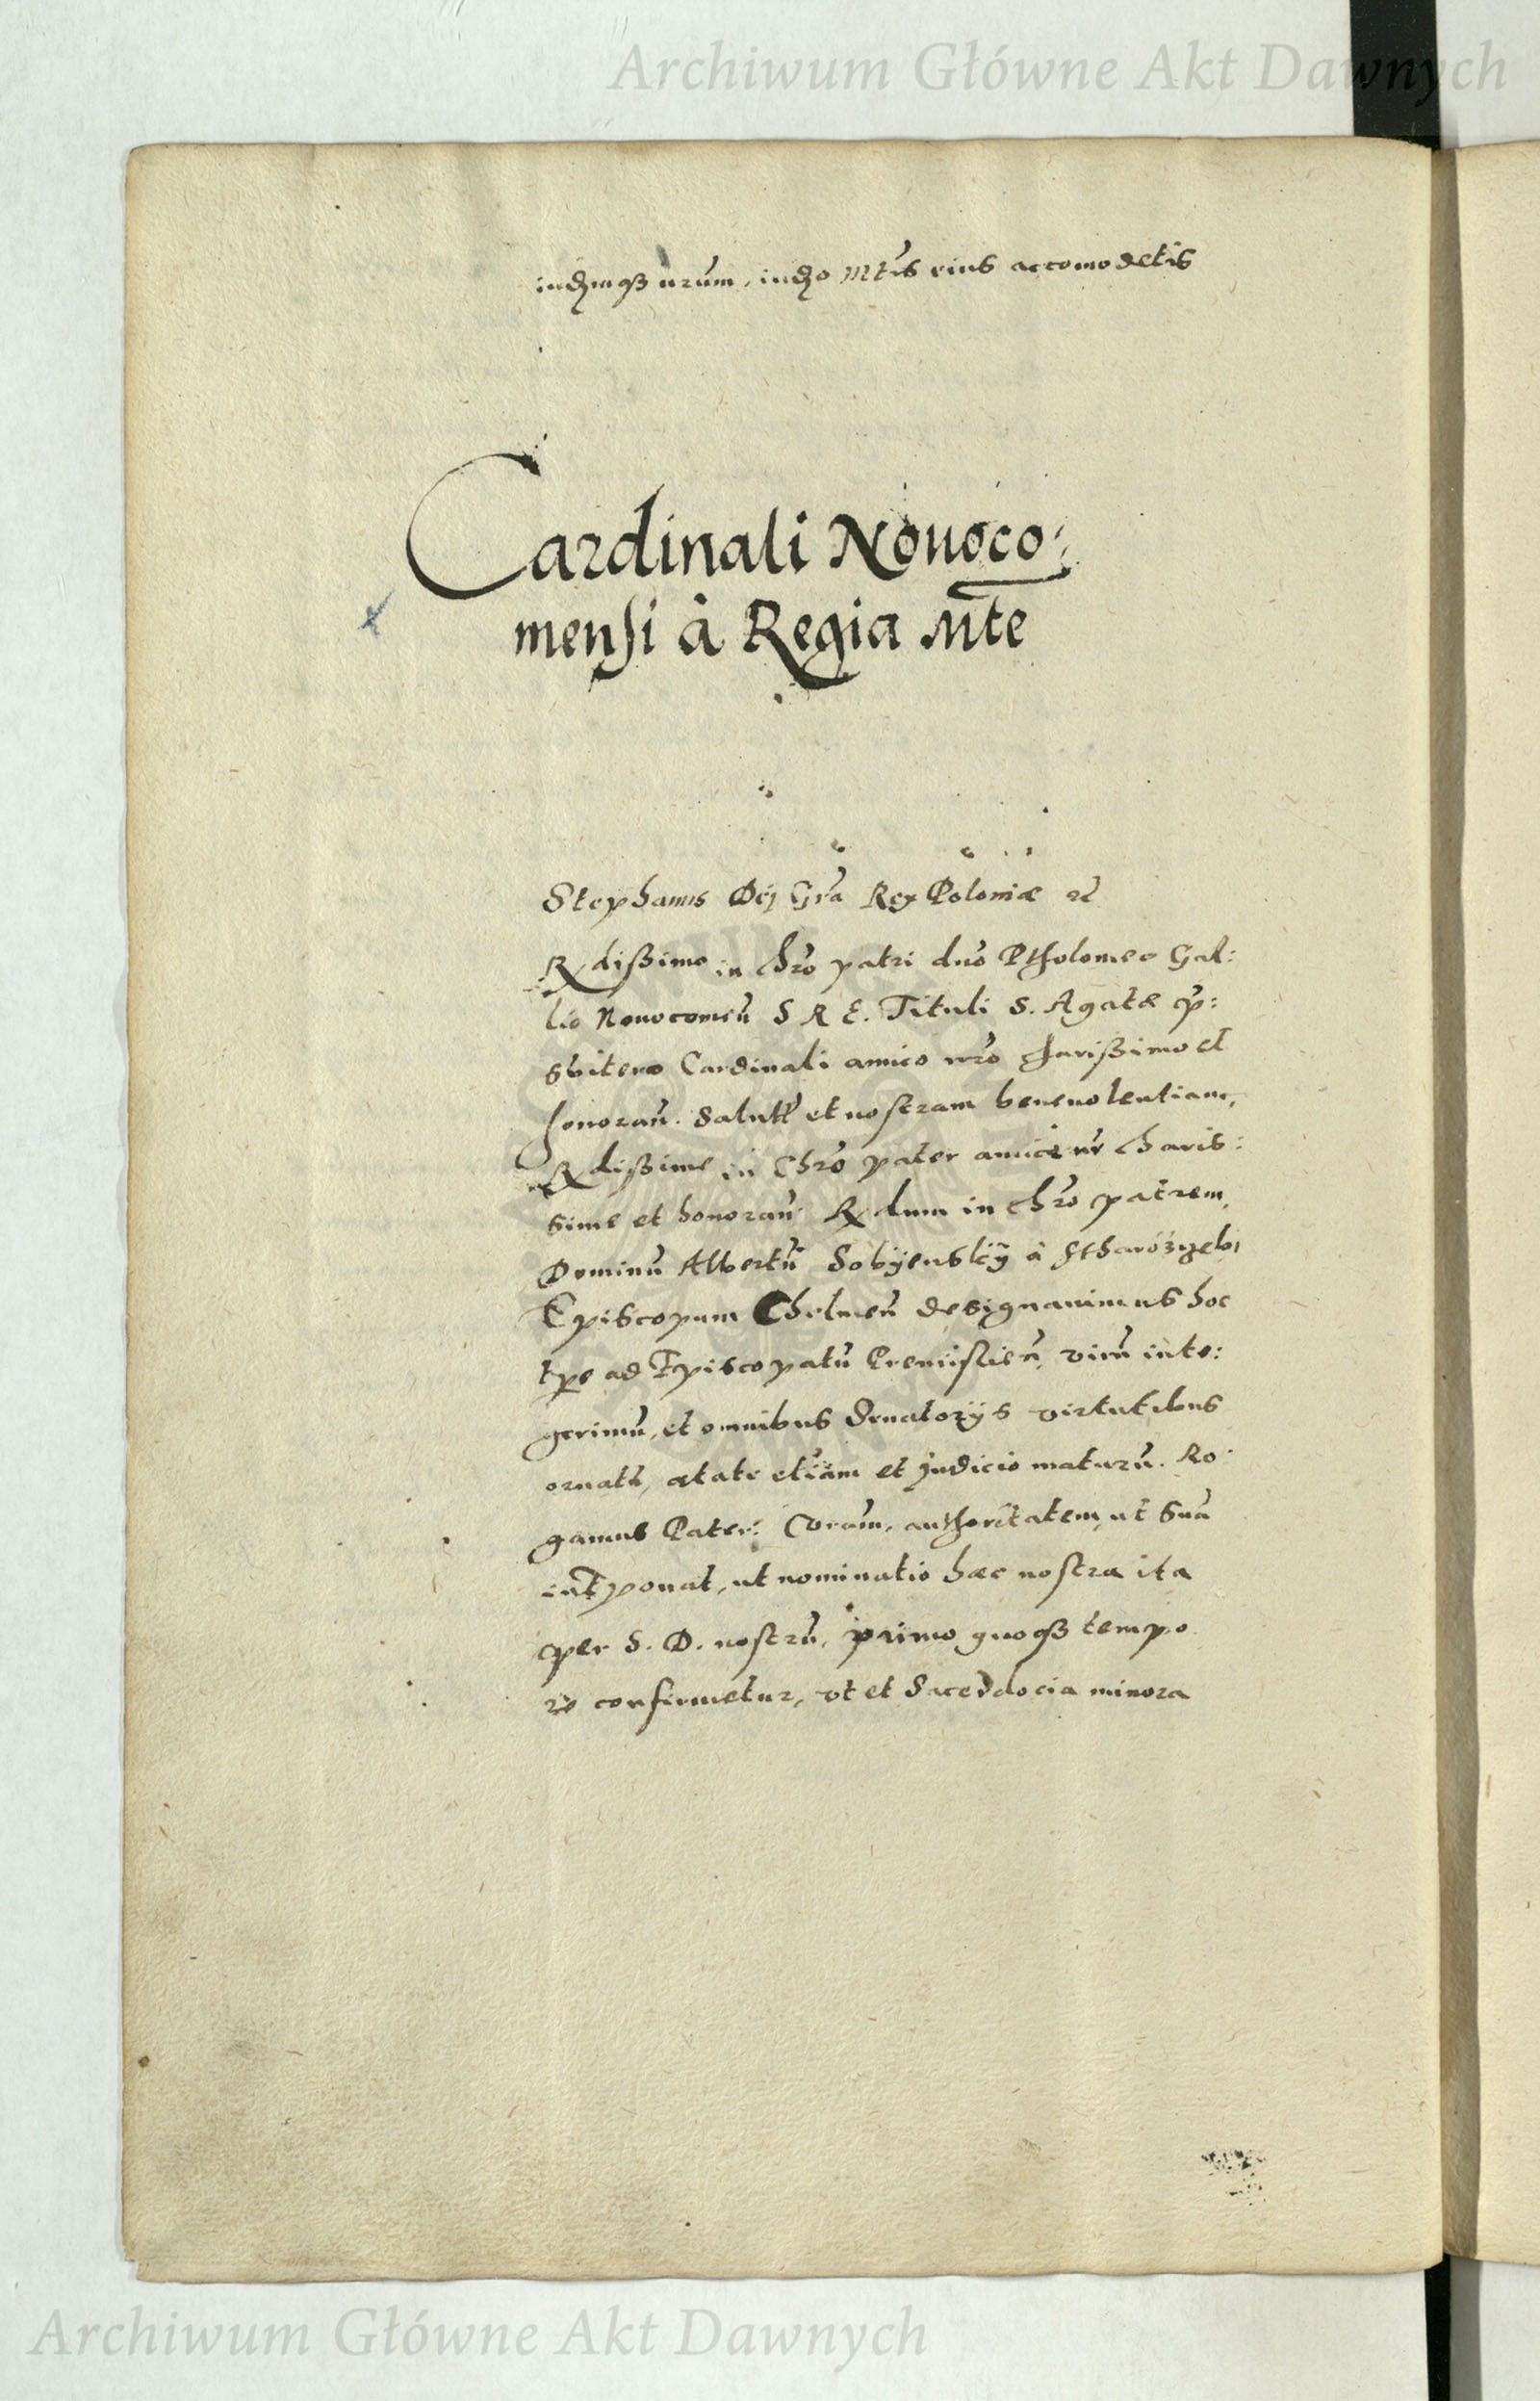 Archiwum Główne Akt Dawnych
urum, Mtis eius accomodetis
Cardinali Nouoco:
mensi à Regia Mte
Stephanus Dei Gra Rex Poloniæ
Rdissimo in Chro patri dno Ptholomeo Gal:
lio Nouocomen̄ S R E. Tituli S. Agatæ p̄:
sbitero Cardinali amico nro charissimo et
honoran̄. Salutē et nostram beneuolentiam,
Rdissime in Chro pater amice nr charis:
sime et honoran̄. Rdum in Chro patrem,
Dominū Albertū Sobÿenskÿ à
Episcopum Chelmen̄ designauimus hoc
tpe ad Episcopatū Premislien̄, virū inte:
gerimū, et omnibus Senatorÿs virtutibus
ornatū, ætate etiam et judicio maturū. Ro
gamus Pater: Vram, authoritatem, ut suā
intponat, ut nominatio hæc nostra ita
per S. D. nostrū, primo quoqȝ tempo
re confirmetur, vt et Sacerdocia minora
Archiwum Główne Akt Dawnych